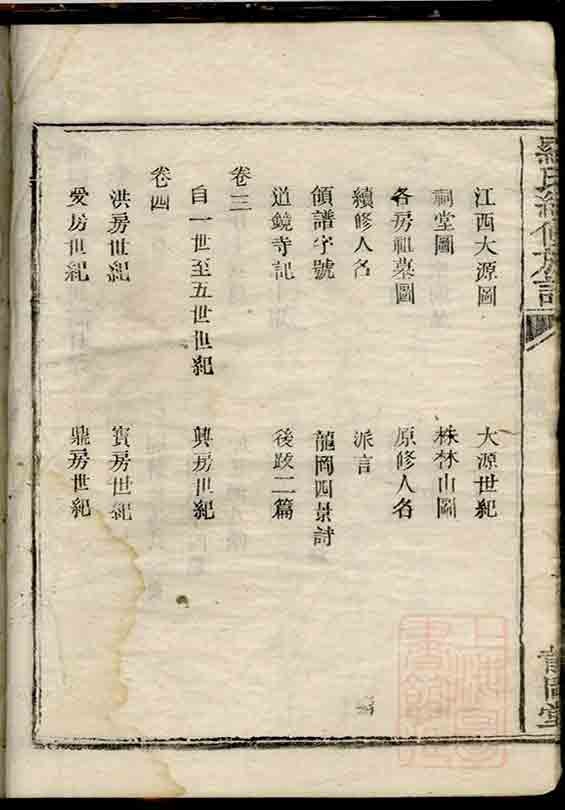 羅氏續修族譜
江西大源圖　大源世紀
祠堂圖　株林山圖
各房祖墓圖　原修人名
續修人名　派言
領譜字號　龍岡四景詩
道鏡寺記　後跋二篇
卷三
自一世至五世世紀　興房世紀
卷四
洪房世紀　寳房世紀
愛房世紀　鼎房世紀